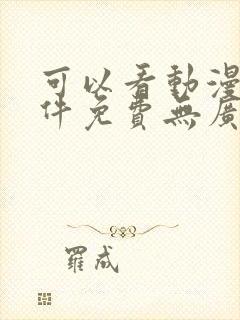 可以看動漫
件免費無廣
羅成